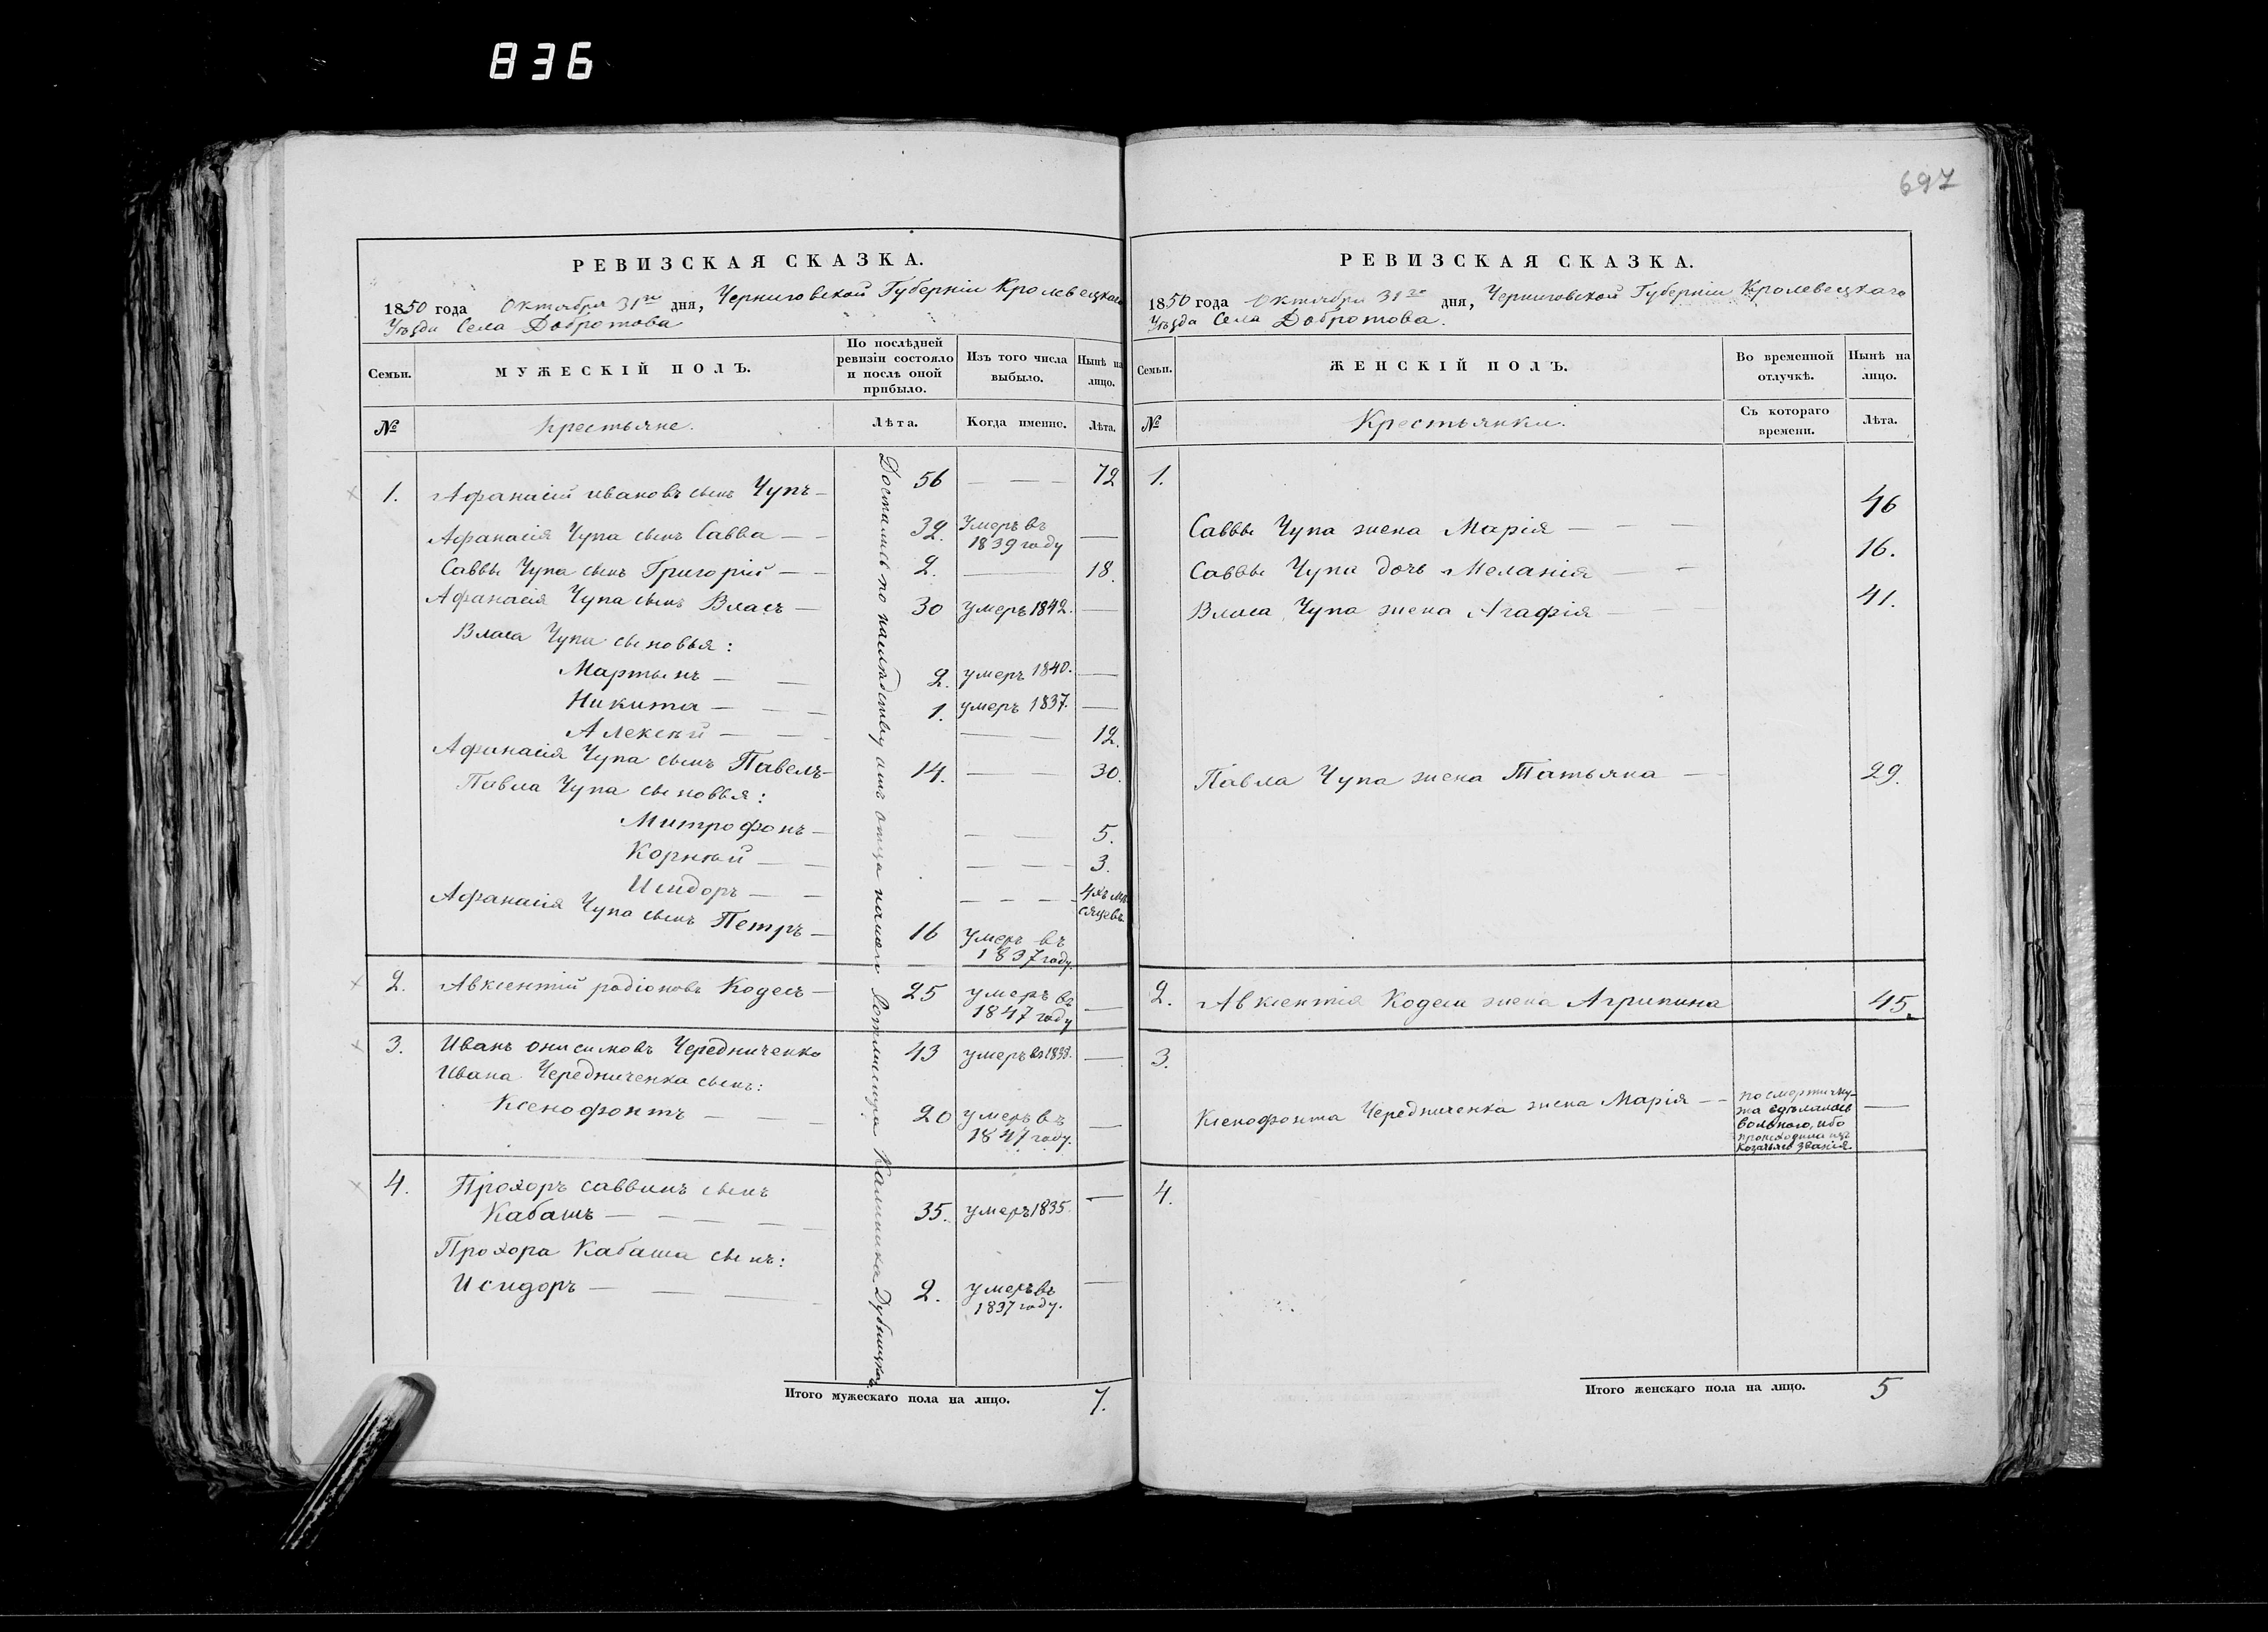 836
697
РЕВИЗСКАЯ СКАЗКА.
1850 года Октября 31го дня, Черниговской Губерніи Кролевецкаго
Уѣзда Села Добротова
Семьи.
МУЖЕСКІЙ ПОЛЪ.
По послѣдней ревизіи состояло и послѣ оной прибыло.
Изъ того числа выбыло.
Нынѣ на лицо.
№ Крестьяне. Лѣта. Когда именно. Лѣта.
1. Афанасій ивановъ сынъ Чупъ — 56 — — — 72
Афанасія Чупа сынъ Савва — — 32. Умеръ въ 1839 году —
Саввы Чупа сынъ Григорій — — 2. — 18.
Афанасія Чупа сынъ Власъ — 30 умеръ 1842. —
Власа Чупа сыновья:
Мартынъ — — 2. умеръ 1840. —
Никита — — — 1. умеръ 1837. —
Алексѣй — — — — 12.
Афанасія Чупа сынъ Павелъ — 14. — — 30.
Павла Чупа сыновья:
Митрофонъ — — — 5.
Корнѣй — — — — — 3.
Исидоръ — — — — — — 4хъ мѣсяцевъ.
Афанасія Чупа сынъ Петръ — 16 Умеръ въ 1837 году.
2. Авксентій радіоновъ Кодесъ — 25 умеръ въ 1847 году —
3. Иванъ онисимовъ Чередниченко 43 умеръ въ 1838. —
Ивана Чередниченка сынъ:
Ксенофонтъ — — — 20 умеръ въ 1847 году. —
4. Прохоръ саввинъ сынъ
Кабашъ — — — — — 35. умеръ 1835. —
Прохора Кабаша сынъ:
Исидоръ — — — — 2. умеръ въ 1837 году. —
Достались по наслѣдству отъ отца Ротмистра Калиника Дубницкаго
Итого мужескаго пола на лицо. 7.
РЕВИЗСКАЯ СКАЗКА.
1850 года Октября 31го дня, Черниговской Губерніи Кролевецкаго
Уѣзда Села Добротова.
Семьи.
ЖЕНСКІЙ ПОЛЪ.
Во временной отлучкѣ.
Нынѣ на лицо.
№ Крестьянки. Съ котораго времени. Лѣта.
1.
Саввы Чупа жена Марія — — — 46
Саввы Чупа дочь Меланія — — 16.
Власа Чупа жена Агафія — — 41.
Павла Чупа жена Татьяна — 29.
2. Авксентія Кодеса жена Агрипина 45.
3.
Ксенофонта Чередниченка жена Марія — — по смерти мужа сдѣлалась вольною, ибо происходила изъ Козачьяго званія. —
4.
Итого женскаго пола на лицо. 5